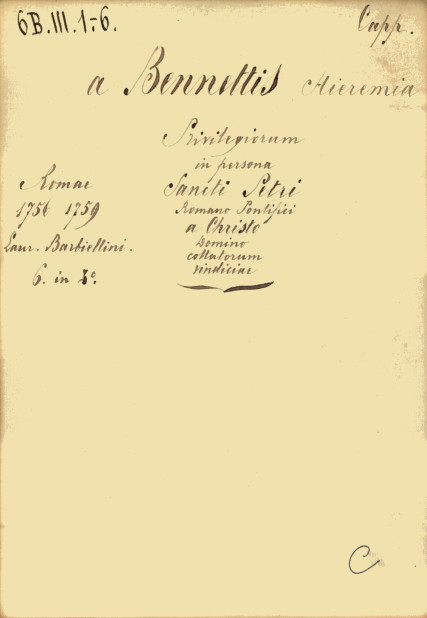 6B.III.1-6.
Capp.
a Bennettis Hieremia
Privilegiorum
in persona
Sancti Petri
Romano Pontifici
a Christo
Domino
collatorum
vindiciae
Romae
1756 1759
Laur. Barbiellini.
6. in 8°.
C